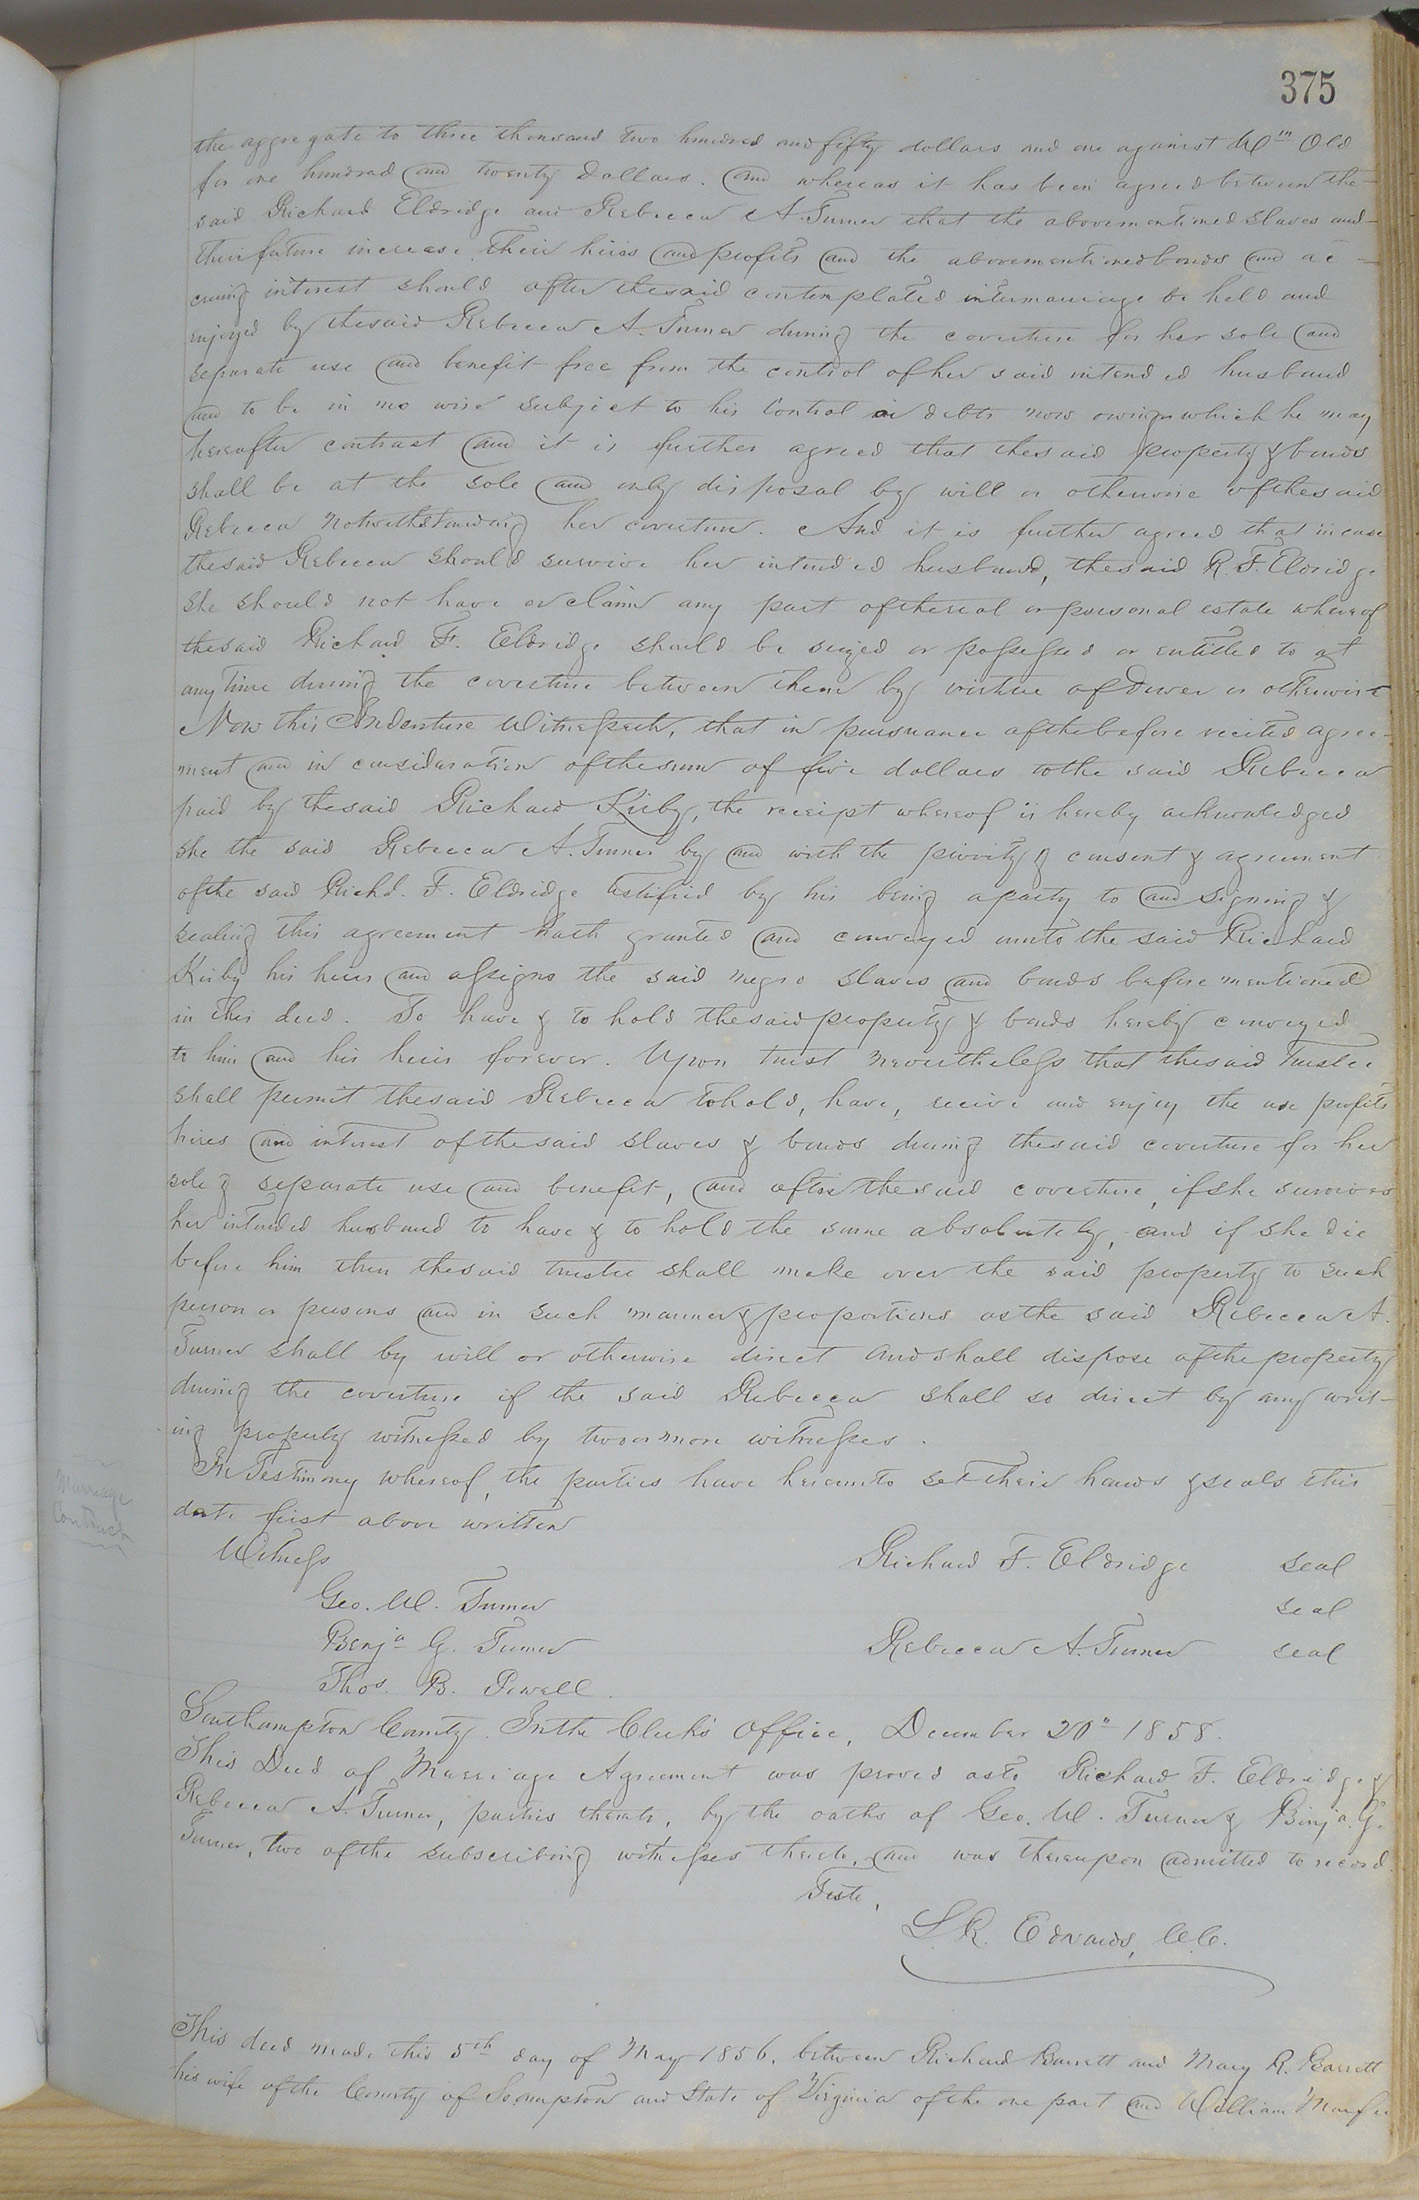 375
the aggregate to three thousand two hundred and fifty dollars and one against Wm Old
for one hundred and twenty Dollars. And whereas it has been agreed between the
said Richard Eldridge and Rebecca A. Turner that the abovementioned slaves and
their future increase, their hires and profits and the abovementioned bonds and ac-
cruing interest should after the said contemplated intermarriage be held and
enjoyed by the said Rebecca A. Turner during the coverture for her sole and
separate use and benefit free from the control of her said intended husband
and to be in no wise subject to his control or debts now owing or which he may
hereafter contract and it is further agreed that the said property & bonds
shall be at the sole and only disposal by will or otherwise of the said
Rebecca notwithstanding her coverture. And it is further agreed that in case
the said Rebecca should survive her intended husband, the said R. F. Eldridge
she should not have or claim any part of the real or personal estate whereof
the said Richard F. Eldridge should be seized or possessed or entitled to at
any time during the coverture between them by virtue of Dower or otherwise
Now this Indenture Witnesseth, that in pursuance of the before recited agree-
ment and in consideration of the sum of five dollars to the said Rebecca
paid by the said Richard Kirby, the receipt whereof is hereby acknowledged
she the said Rebecca A. Turner by and with the privity & consent & agreement
of the said Richd. F. Eldridge testified by his being a party to and signing &
sealing this agreement hath granted and conveyed unto the said Richard
Kirby his heirs and assigns the said negro slaves and bonds before mentioned
in this deed. To have & to hold the said property & bonds hereby conveyed
to him and his heirs forever. Upon trust nevertheless that the said trustee
shall permit the said Rebecca to hold, have, receive and enjoy the use profits
hires and interest of the said slaves & bonds during the said coverture for her
sole & separate use and benefit, and after the said coverture, if she survives
her intended husband to have & to hold the same absolutely, and if she die
before him then the said trustee shall make over the said property to such
person or persons and in such manner & proportions as the said Rebecca A.
Turner shall by will or otherwise direct and shall dispose of the property
during the coverture if the said Rebecca shall so direct by any writ-
ing properly witnessed by two or more witnesses.
In Testimony whereof, the parties have hereunto set their hands & seals this
date first above written
Marriage
Contract
Witness
Richard F. Eldridge seal
Geo. W. Turner
seal
Benja G. Turner
Rebecca A. Turner seal
Thos. B. Powell.
Southampton County. In the Clerk's Office, December 20" 1858.
This Deed of Marriage Agreement was proved as to Richard F. Eldridge &
Rebecca A. Turner, parties thereto, by the oaths of Geo. W. Turner & Benja. G.
Turner, two of the subscribing witnesses thereto, and was thereupon admitted to record.
Teste,
L. R. Edwards, C.C.
This deed made this 5th day of May 1856, between Richard Barrett and Mary R. Barrett
his wife of the County of Soampton and State of Virginia of the one part and William